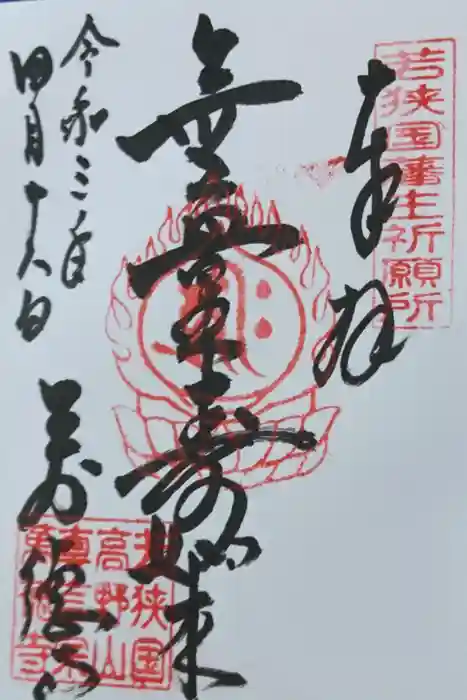 若狭国藩主祈願所
奉拝
無量寿如来
令和三年
四月十八日
萬徳寺
若狭国
高野山
真言宗
萬徳寺